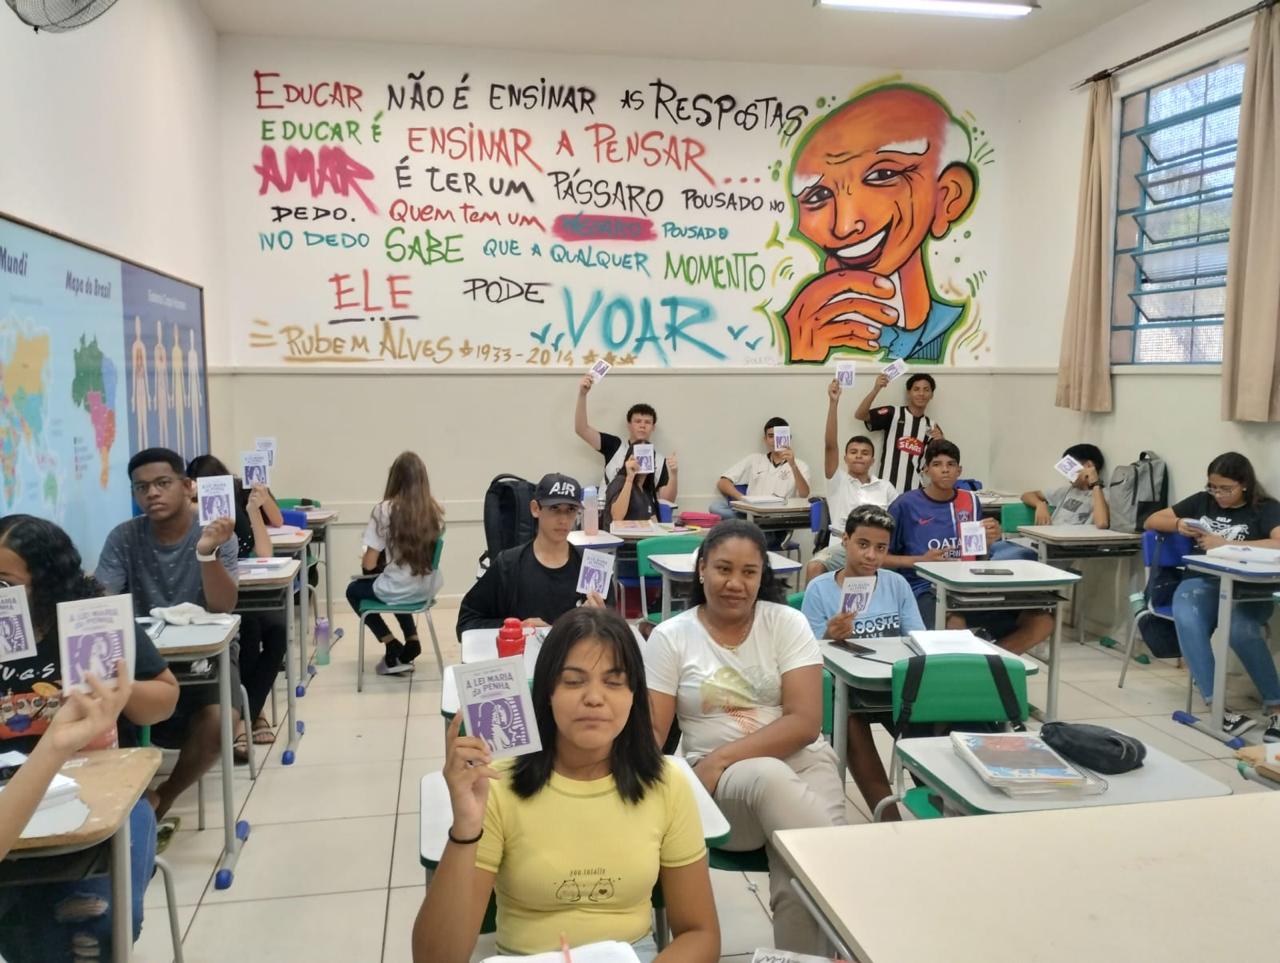 EDUCAR NÃO É ENSINAR AS RESPOSTAS
EDUCAR É ENSINAR A PENSAR...
AMAR É TER UM PÁSSARO POUSADO NO
DEDO. QUEM TEM UM PÁSSARO POUSADO
NO DEDO SABE QUE A QUALQUER MOMENTO
ELE PODE VOAR
RUBEM ALVES 1933-2014
Mundi
Mapa do Brasil
A LEI MARIA
DA PENHA
AIR
SEARA
QATAR
LACOSTE
you totally